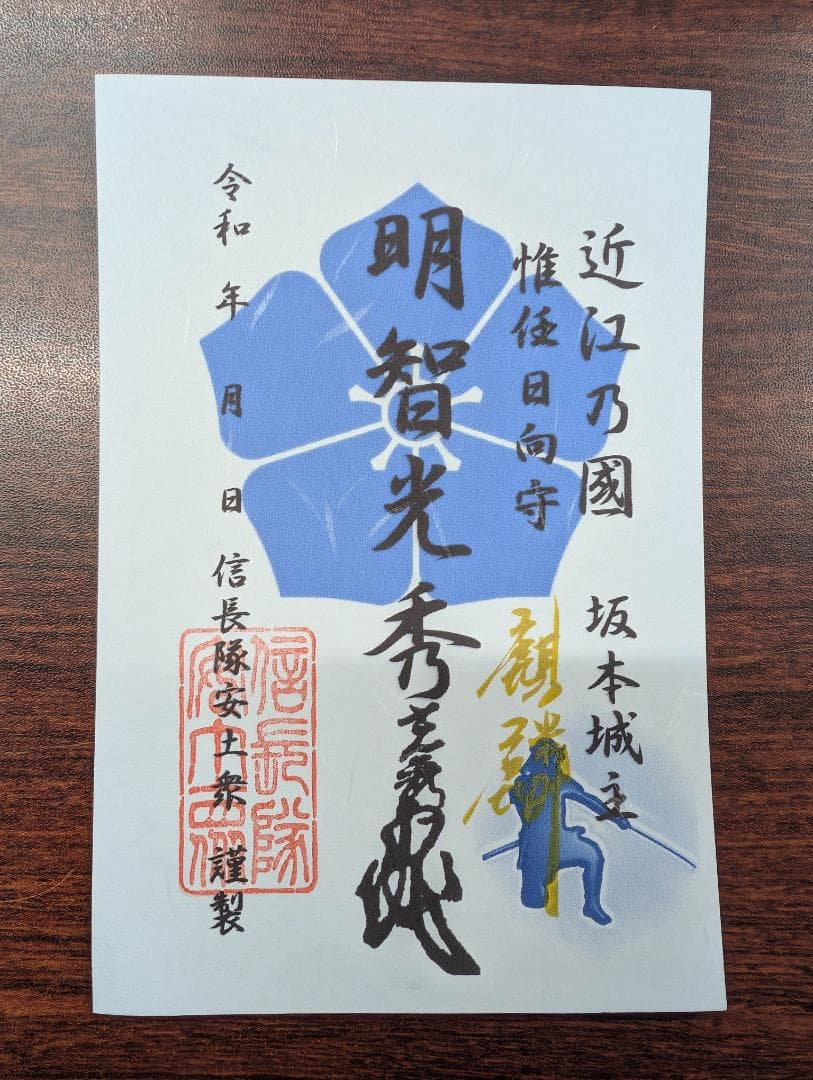 近江乃國 坂本城主
惟任日向守
麒麟
明智光秀
令和 年 月 日 信長隊安土衆 謹製
信長隊
安土衆